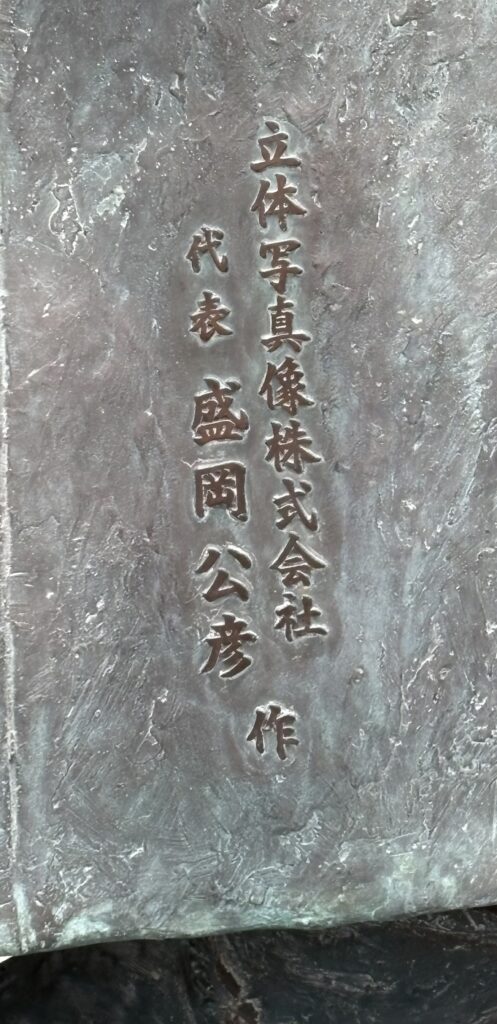 立体写真像株式会社
代表 盛岡公彦
作